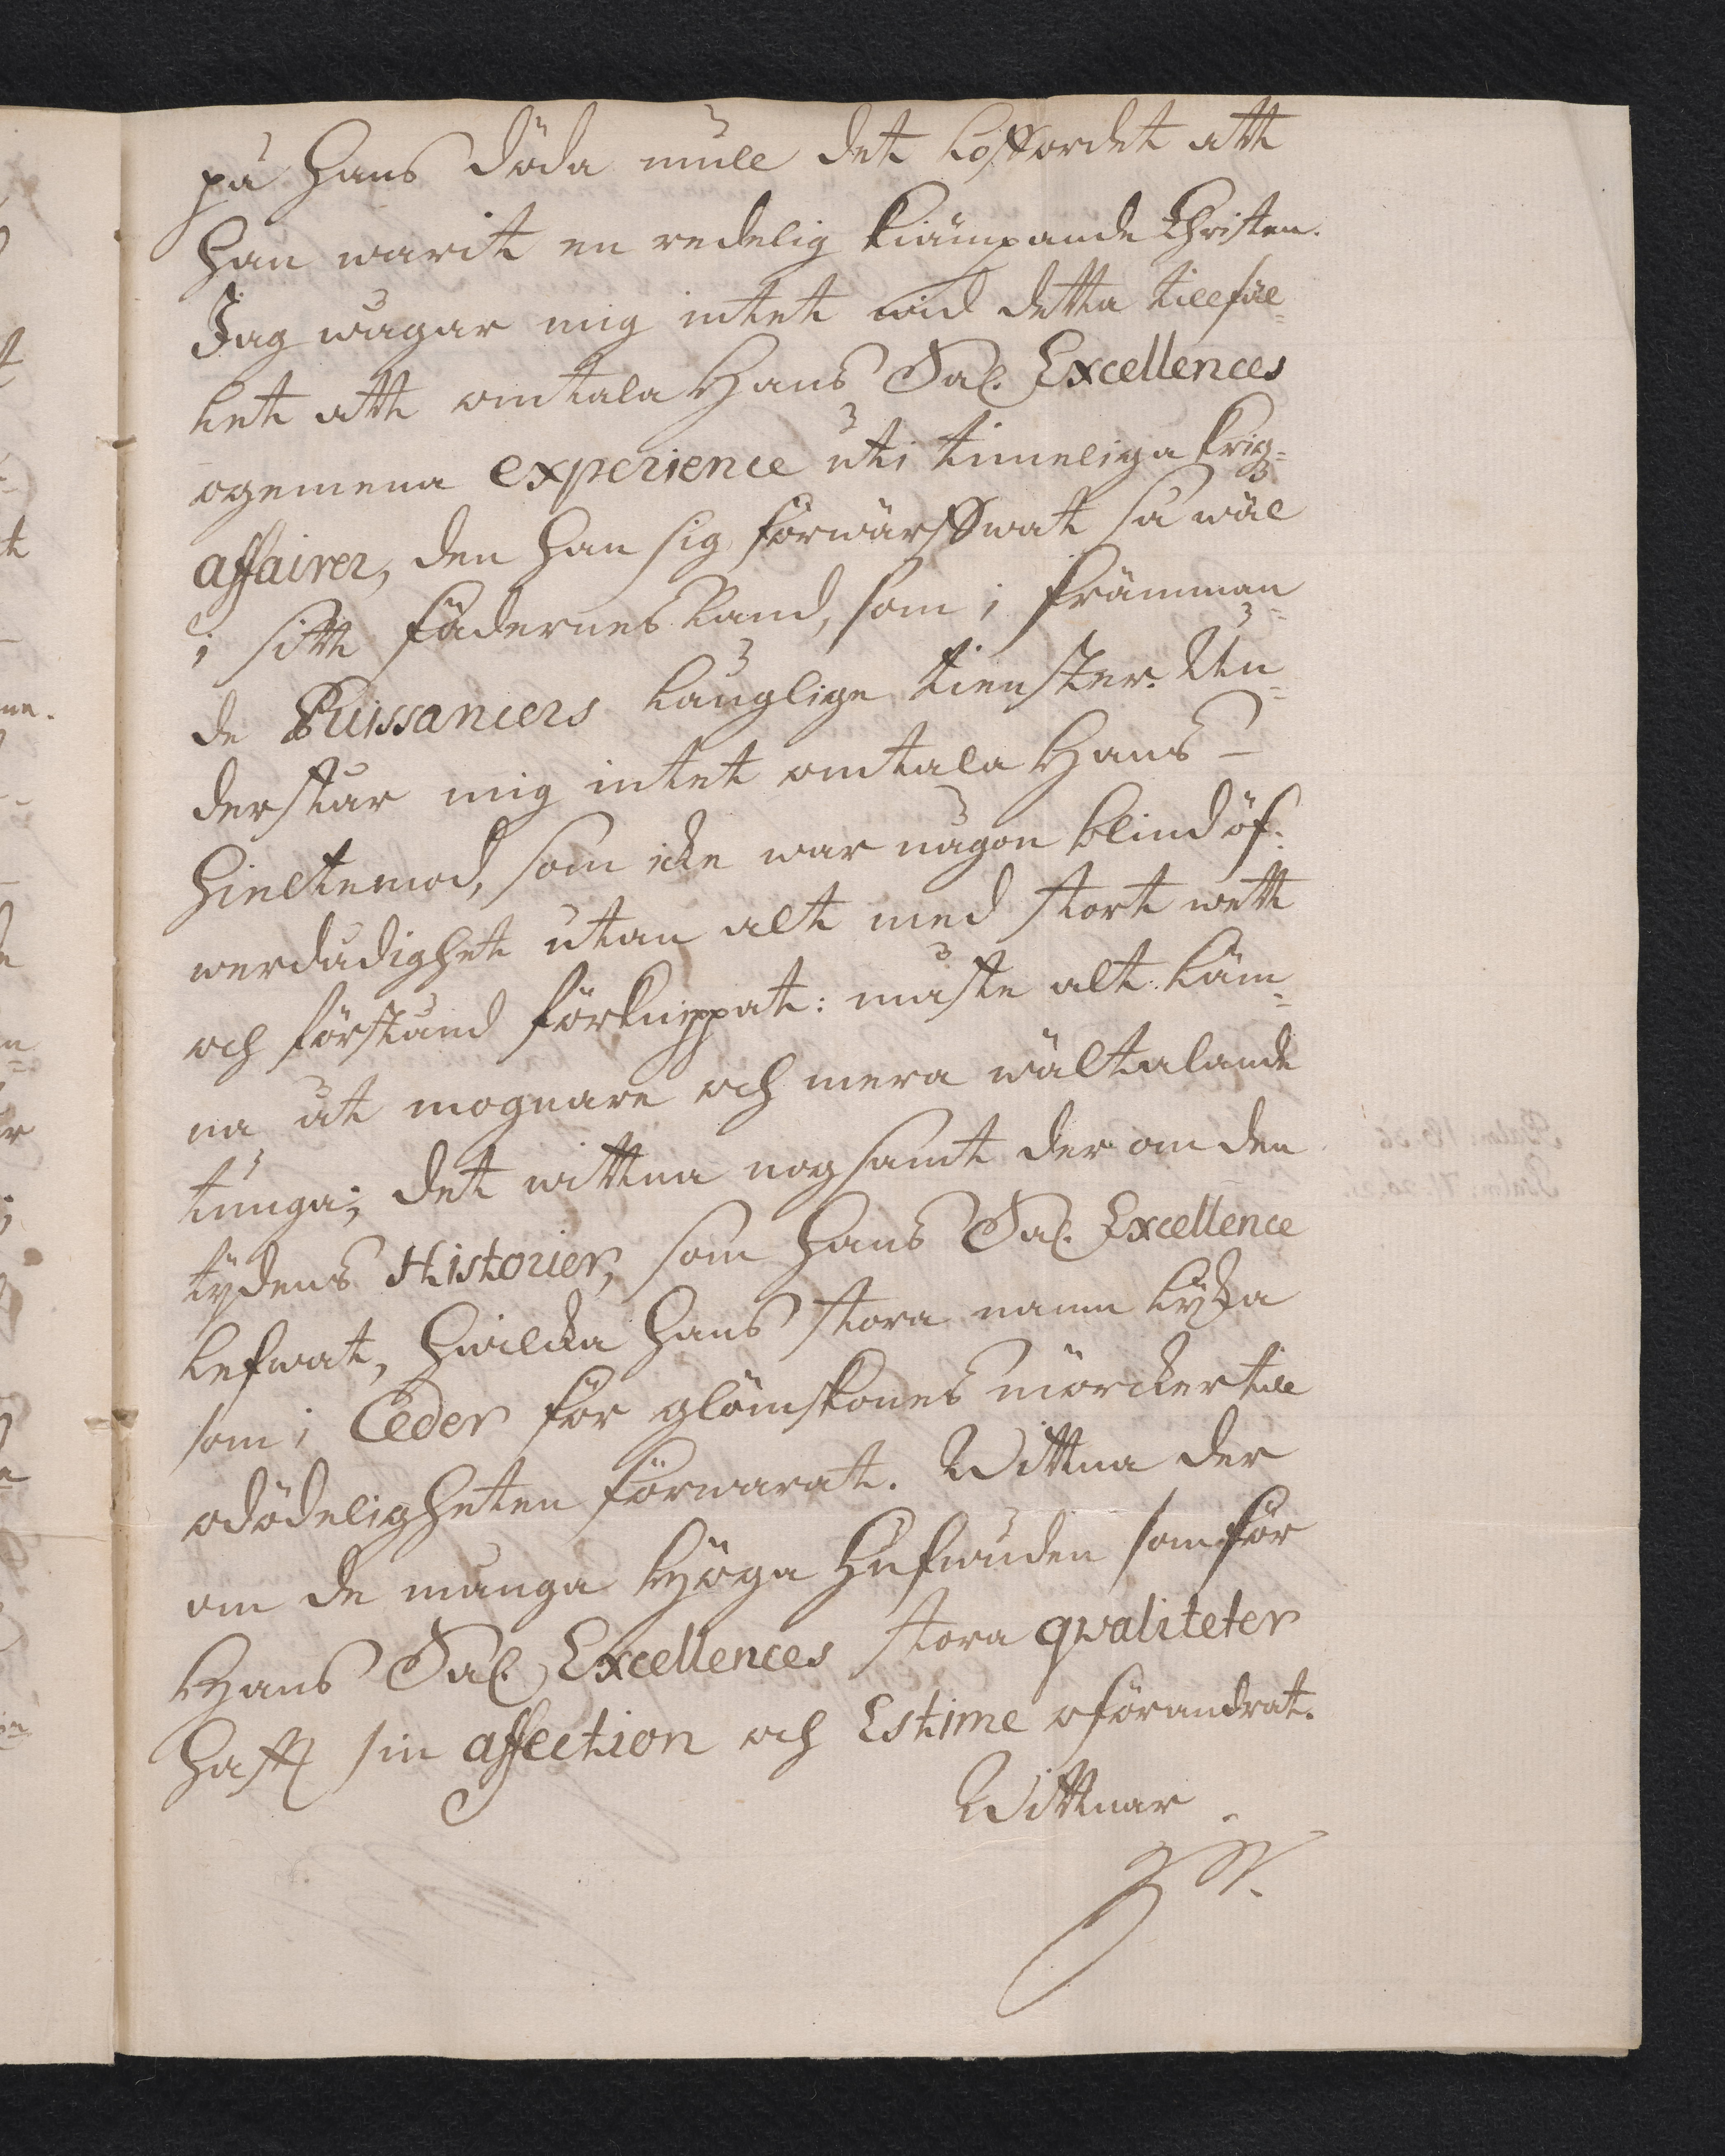 på hans döda mull det loffordet att
han warit en redelig kiämpande Christen.
Jag wågar mig intet wid detta tillfäl=
let att omtala Hans Sal. Excellences
ogemena experience uti timmeliga krigs=
affairer, den han sig förwärffwat så wäl
i sitt fädernesland, som i främman=
de Puissancers lauglige tienster. Un=
derstår mig intet omtala Hans
hieltemod, som icke war någon blind öf=
werdådighet utan alt med stort wett
och förstånd förknippat: måste alt läm=
na åt mognare och mera wältalande
tunga; det wittna nogsamt der om den
tydens Historier, som hans Sal. Excellence
lefwat, hwilcka hans stora namn lyka
som i Ceder för glömskones mörcker till
odödeligheten förwarat. Wittna der
om de många Höga Hufwuden som för
Hans Sal. Excellences stora qwaliteter
haft sin affection och Estime oförandrat.
Wittnar